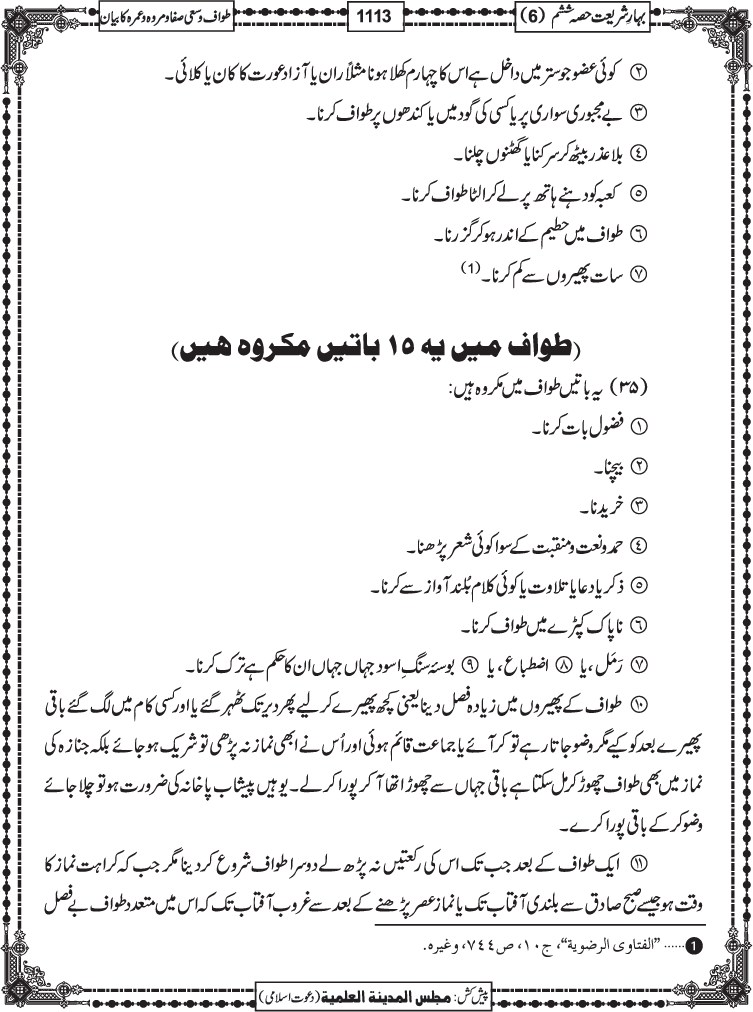 بہار شریعت حصہ ششم (6)
1113
طواف وسعی صفا و مروہ وعمرہ کا بیان
② کوئی عضو جو ستر میں داخل ہے اس کا چہارم کھلا ہونا مثلاً ران یا آزاد عورت کا کان یا کلائی ۔
③ بے مجبوری سواری پر یا کسی کی گود میں یا کندھوں پر طواف کرنا۔
④ بلا عذر بیٹھ کر سرکنا یا گھٹنوں چلنا۔
⑤ کعبہ کو دہنے ہاتھ پر لے کر الٹا طواف کرنا۔
⑥ طواف میں حطیم کے اندر ہو کر گزرنا۔
⑦ سات پھیروں سے کم کرنا۔ (1)
(طواف میں یہ ۱۵ باتیں مکروہ ہیں)
(۳۵) یہ باتیں طواف میں مکروہ ہیں:
① فضول بات کرنا۔
② بیچنا۔
③ خریدنا۔
④ حمد و نعت و منقبت کے سوا کوئی شعر پڑھنا۔
⑤ ذکر یا دعا یا تلاوت یا کوئی کلام بُلند آواز سے کرنا۔
⑥ ناپاک کپڑے میں طواف کرنا۔
⑦ رَمَل ،یا ⑧ اضطباع، یا ⑨ بوسۂ سنگِ اسود جہاں جہاں ان کا حکم ہے ترک کرنا۔
⑩ طواف کے پھیروں میں زیادہ فصل دینا یعنی کچھ پھیرے کر لیے پھر دیر تک ٹھہر گئے یا اور کسی کام میں لگ گئے باقی
پھیرے بعد کو کیے مگر وضو جاتا رہے تو کر آئے یا جماعت قائم ہوئی اور اُس نے ابھی نماز نہ پڑھی تو شریک ہو جائے بلکہ جنازہ کی
نماز میں بھی طواف چھوڑ کر مل سکتا ہے باقی جہاں سے چھوڑا تھا آ کر پورا کر لے۔ یوہیں پیشاب پاخانہ کی ضرورت ہو تو چلا جائے
وضو کر کے باقی پورا کرے۔
⑪ ایک طواف کے بعد جب تک اس کی رکعتیں نہ پڑھ لے دوسرا طواف شروع کر دینا مگر جب کہ کراہت نماز کا
وقت ہو جیسے صبح صادق سے بلندی آفتاب تک یا نماز عصر پڑھنے کے بعد سے غروب آفتاب تک کہ اس میں متعدد طواف بے فصل
❶ ...... ”الفتاوى الرضوية“، ج۱۰، ص۷٤٤، وغیرہ.
پیش کش: مجلس المدينة العلمية (دعوت اسلامی)